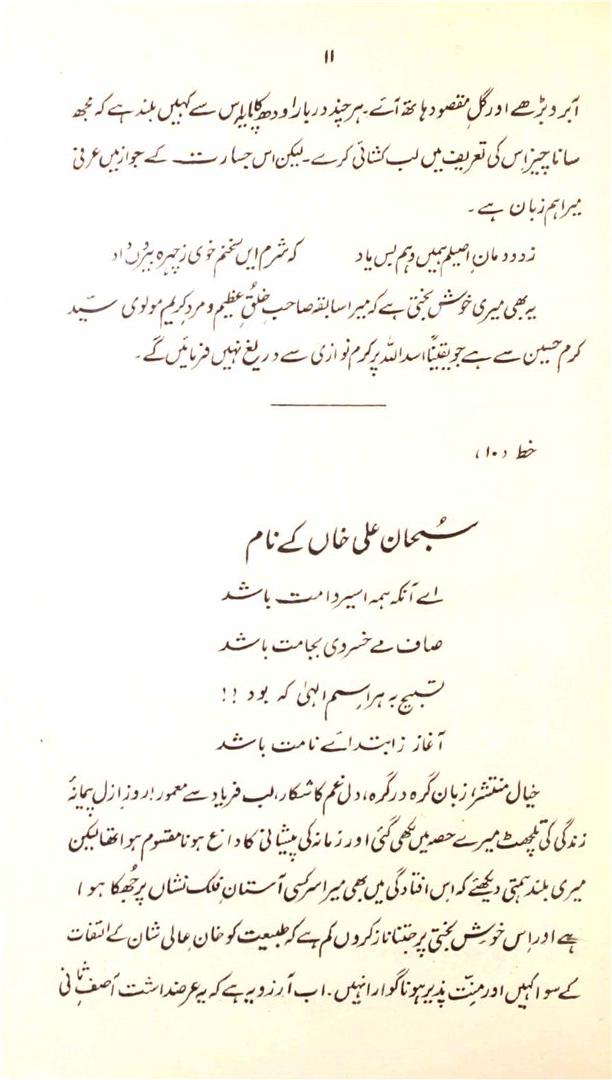 ۱۱
آبرو بڑھے اور گلِ مقصود ہاتھ آئے۔ ہر چند دربارِ اودھ کا پایہ اس سے کہیں بلند ہے کہ مجھ
سا ناچیز اس کی تعریف میں لب کشائی کرے۔ لیکن اس جسارت کے جواز میں عرفی
میرا ہم زبان ہے۔
ز دودمان اصیلم ہمیں وہم بس یاد کہ شرم ایں سخنم خوی ز چہرہ بیروں داد
یہ بھی میری خوش بختی ہے کہ میرا سابقہ صاحب خلقِ عظیم و مردِ کریم مولوی سیّد
کرم حسین سے ہے جو یقیناً اسد اللہ پر کرم نوازی سے دریغ نہیں فرمائیں گے۔
خط (۱۰)
سُبحان علی خاں کے نام
اے آنکہ ہمہ اسیر دامت باشد
صاف مے خسروی بجامت باشد
تسبیح بہ ہر اسم الہیٰ کہ بود !!
آغاز ز ابتدائے نامت باشد
خیال منتشر، زبان گرہ در گرہ، دل غم کا شکار، لب فریاد سے معمور! روزِ ازل پیمانۂ
زندگی کی تلچھٹ میرے حصہ میں لکھی گئی اور زمانہ کی پیشانی کا داغ ہونا مقسوم ہوا تھا لیکن
میری بلند ہمتی دیکھئے کہ اس افتادگی میں بھی میرا سر کسی آستانِ فلک نشاں پر جُھکا ہوا
ہے اور اس خوش بختی پر جتنا ناز کروں کم ہے کہ طبیعت کو خانِ عالی شان کے التفات
کے سوا کہیں اور منّت پذیر ہونا گوارا نہیں۔ اب آرزو یہ ہے کہ یہ عرضداشت آصفِ ثانی